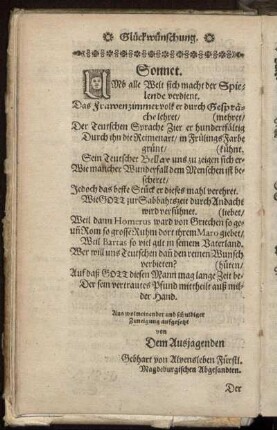 Glückwünschung.
Sonnet.
UMb alle Welt sich macht der Spie-
lende verdient.
Das Frawenzimmer volk er durch Gesprä-
che lehret / (mehret /
Der Teutschen Sprache Zier er hundertfältig
Durch ihn die Reimenart / in Frülings Farbe
grünt / (kühnt.
Sein Teutscher Bellay uns zu zeigen sich er-
Wie mancher Wunderfall dem Menschen ist be-
scheret /
Jedoch das beste Stück er dieses mahl verehret.
Wie GOTT zur Sabbahtszeit durch Andacht
wird versühnet. (liebet /
Weil dann Homerus ward von Griechen so ge-
uñ Rom so grosse Ruhm dort ihrem Maro giebet /
Weil Bartas so viel gilt in seinem Vaterland.
Wer wil uns Teutschen dañ den reinen Wunsch
verbieten? (hüten /
Auf daß GOTT diesen Mann mag lange Zeit be-
Der sein vertrautes Pfund mittheilt auß mil-
der Hand.
Aus wolmeinender und schuldiger
Zuneigung aufgesetzt
von
Dem Aussjagenden
Gebhart von Alvensleben Fürstl.
Magdeburgischen Abgesandten.
Der